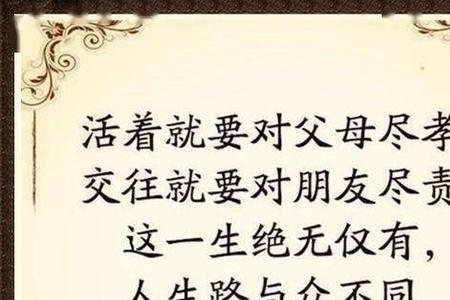 活着就要对父母尽孝
交往就要对朋友尽责
这一生绝无仅有，
人生路与众不同